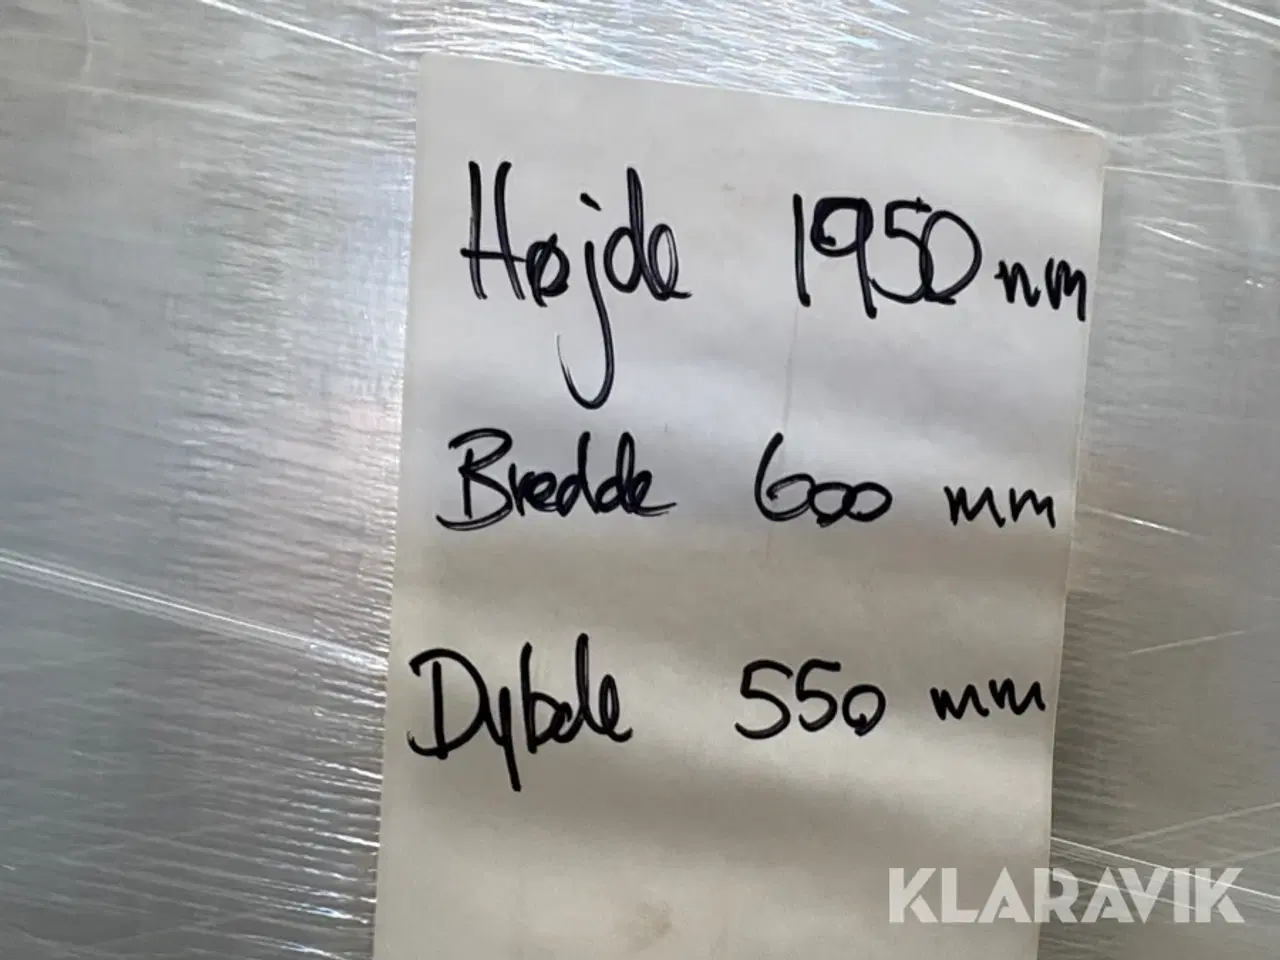 Højde 1950 mm
Bredde 600 mm
Dybde 550 mm
KLARAVIK